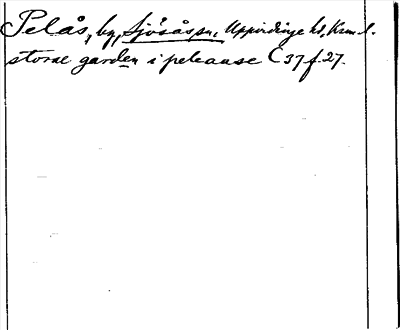 Pelås, by, Sjösås sn, Uppvidinge hd, Kron. l.
storae garden i peleause C 37 f. 27.